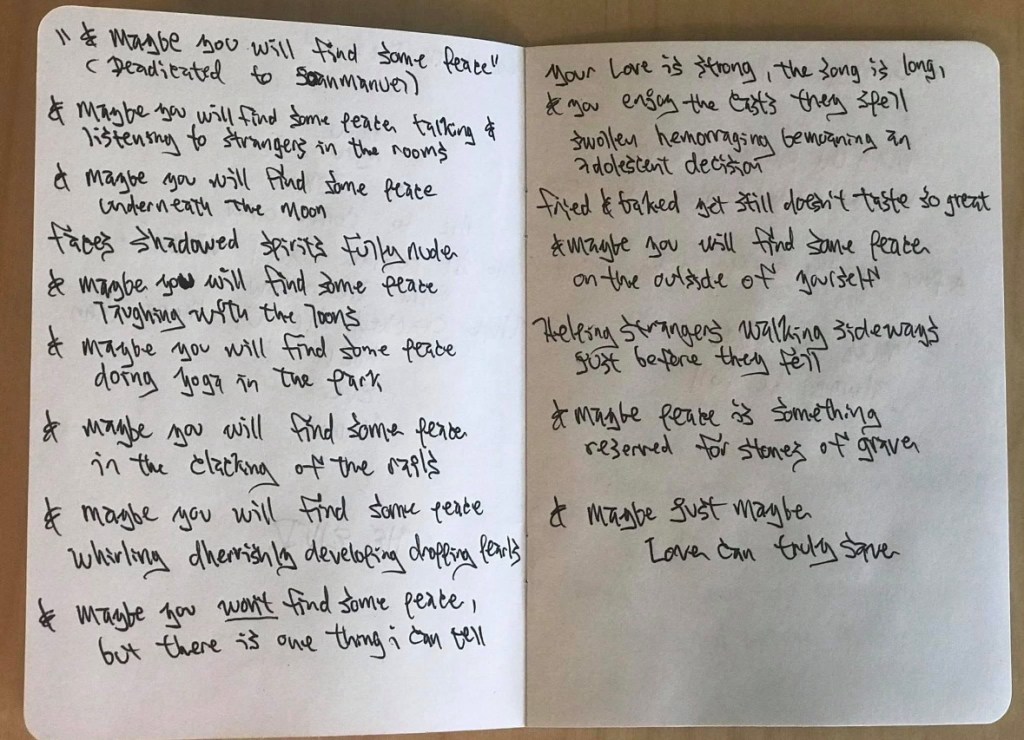 "& Maybe you will find some peace"
(Deadicated to Soanmanuel)
& Maybe you will find some peace talking &
listening to strangers in the rooms
& maybe you will find some peace
underneath the moon
faces shadowed spirits fully nude
& maybe you will find some peace
laughing with the loons
& maybe you will find some peace
doing yoga in the park
& maybe you will find some peace
in the clacking of the rails
& maybe you will find some peace
whirling dherrishly developing dropping pearls
& maybe you won't find some peace,
but there is one thing i can tell
your Love is strong, the song is long,
& you enjoy the casts they spell
swollen hemorraging bemoaning an
adolescent decision
fried & baked yet still doesn't taste so great
& maybe you will find some peace
on the outside of yourself
Helping strangers walking sideways
just before they fell
& maybe peace is something
reserved for stones of grave
& maybe just maybe
Love can truly save